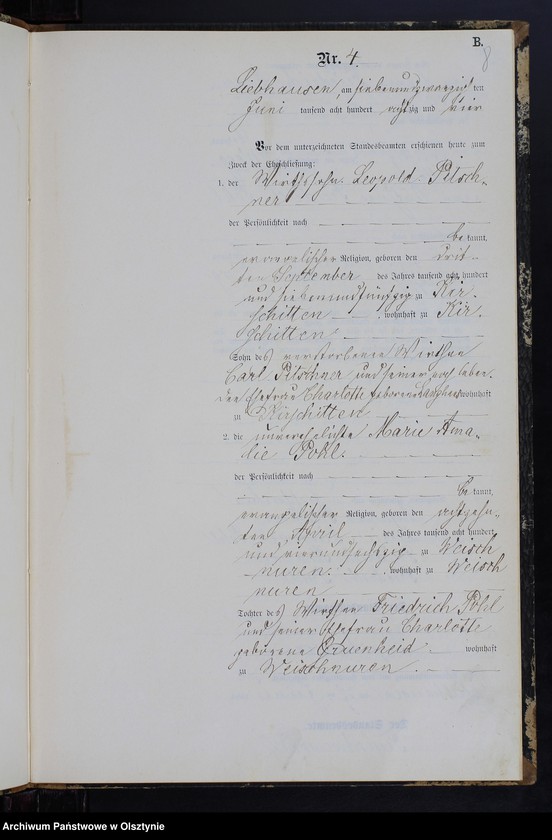 B.
8
Nr. 4.
Liebhausen, am siebenundzwanzigsten
Juni tausend acht hundert achtzig und vier
Vor dem unterzeichneten Standesbeamten erschienen heute zum
Zweck der Eheschließung:
1. der Wirthssohn Leopold Pitsch-
ner
der Persönlichkeit nach
be kannt,
evangelischer Religion, geboren den drit-
ten September des Jahres tausend acht hundert
und siebenundfünfzig zu Kir-
schitten, wohnhaft zu Kir-
schitten
Sohn des verstorbenen Wirthen
Carl Pitschner und seiner noch leben-
den Ehefrau Charlotte geborene wohnhaft
zu Kirschitten
2. die unverehelichte Marie Ama-
lie Pohl.
der Persönlichkeit nach
be kannt,
evangelischer Religion, geboren den achtzehn-
ten April des Jahres tausend acht hundert
und vierundsechszig zu Weisch
nuren, wohnhaft zu Weisch
nuren
Tochter des Wirthen Friedrich Pohl
und seiner Ehefrau Charlotte
geborene Gruenheid wohnhaft
zu Weischnuren.
Archiwum Państwowe w Olsztynie